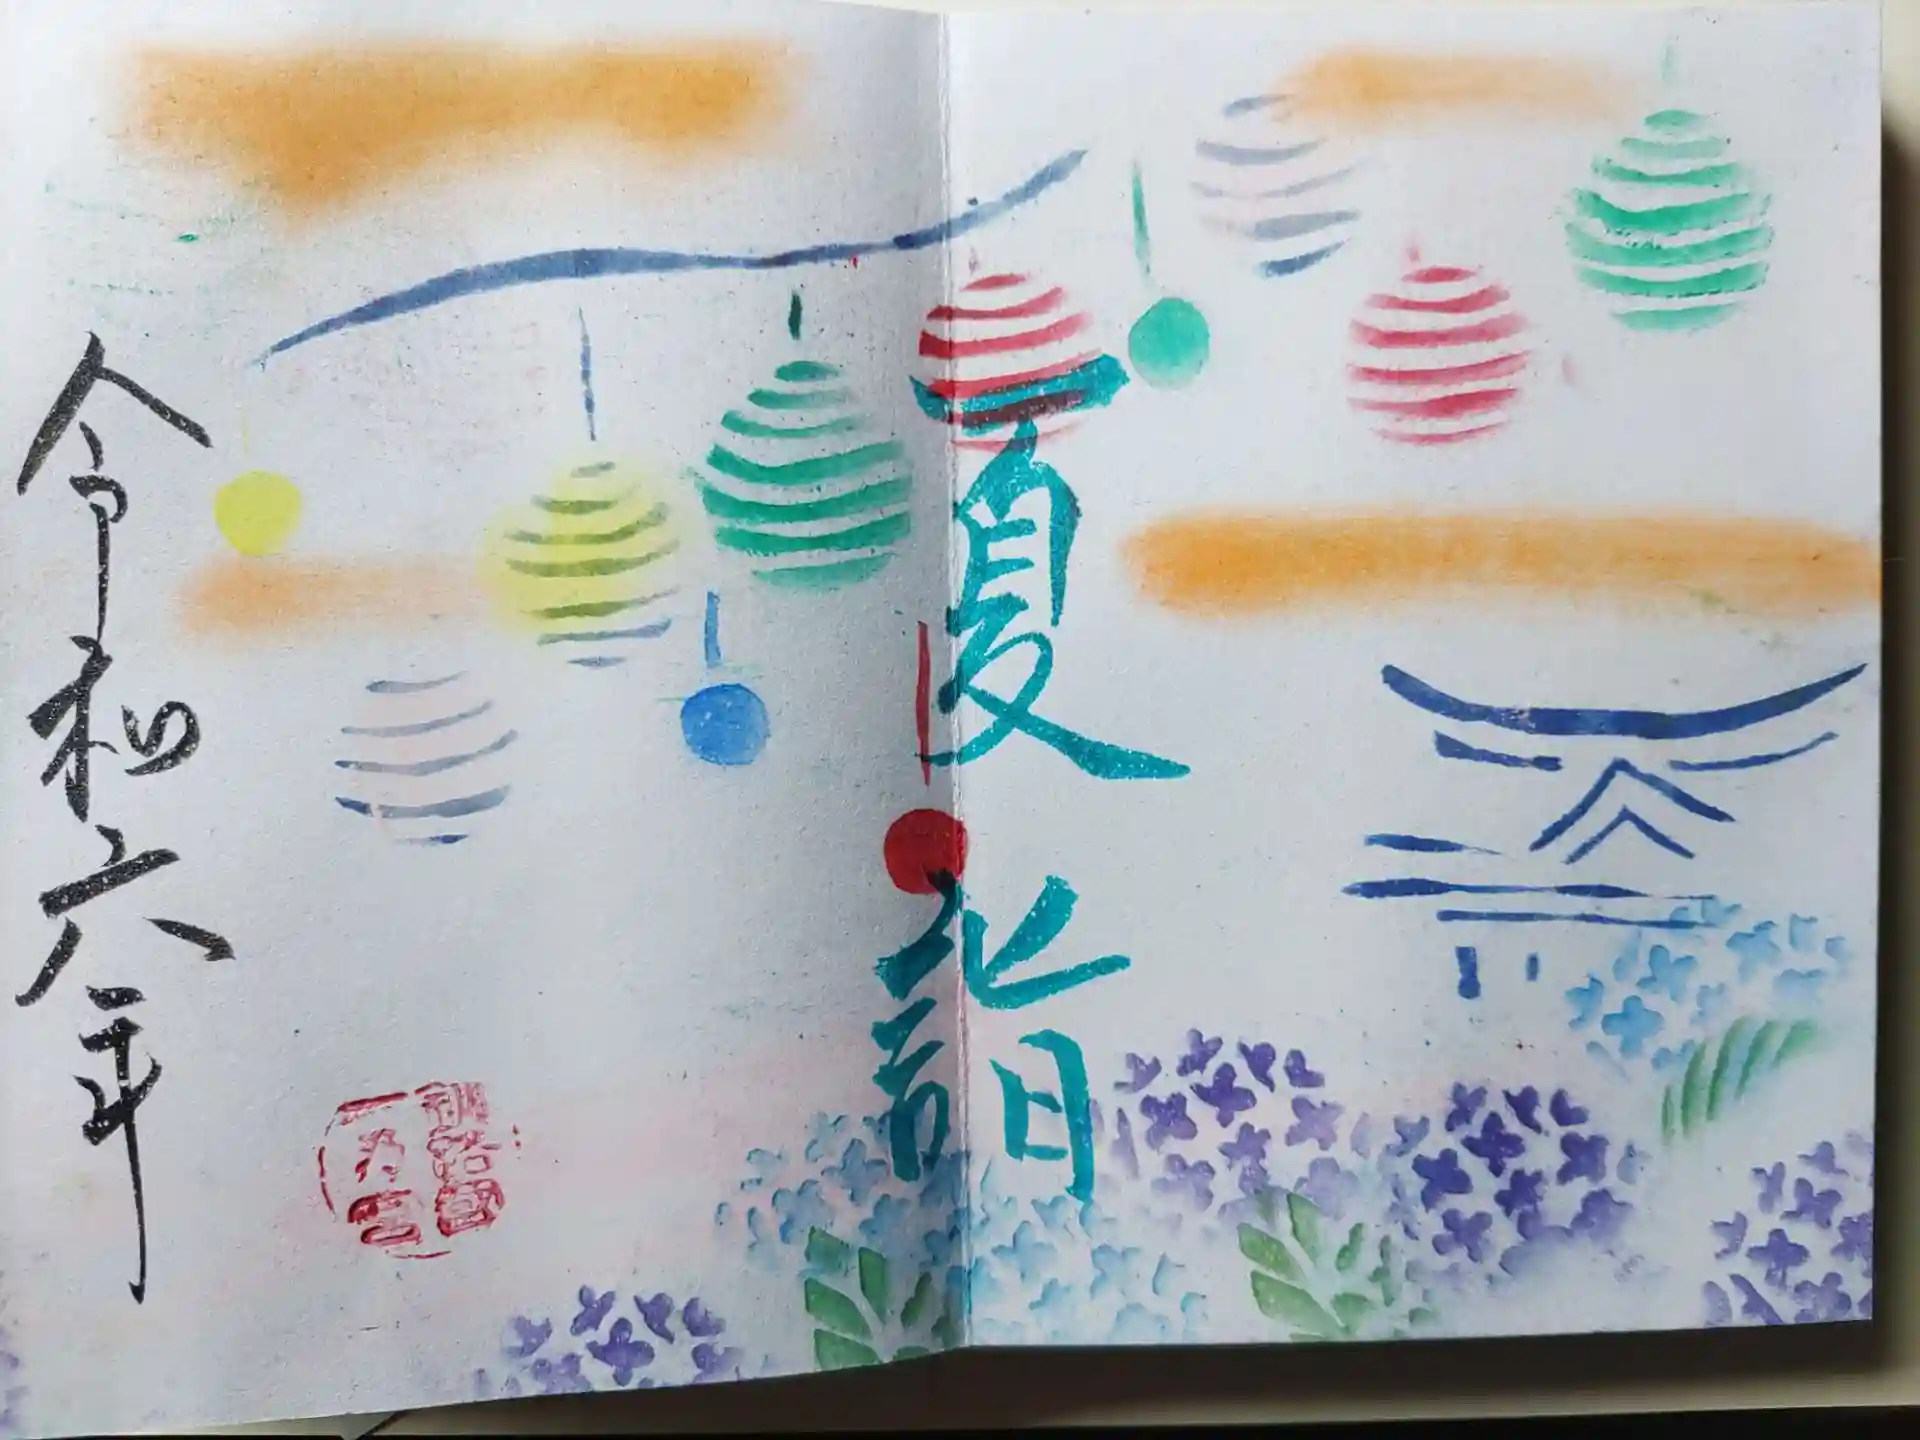 夏詣
令和六年